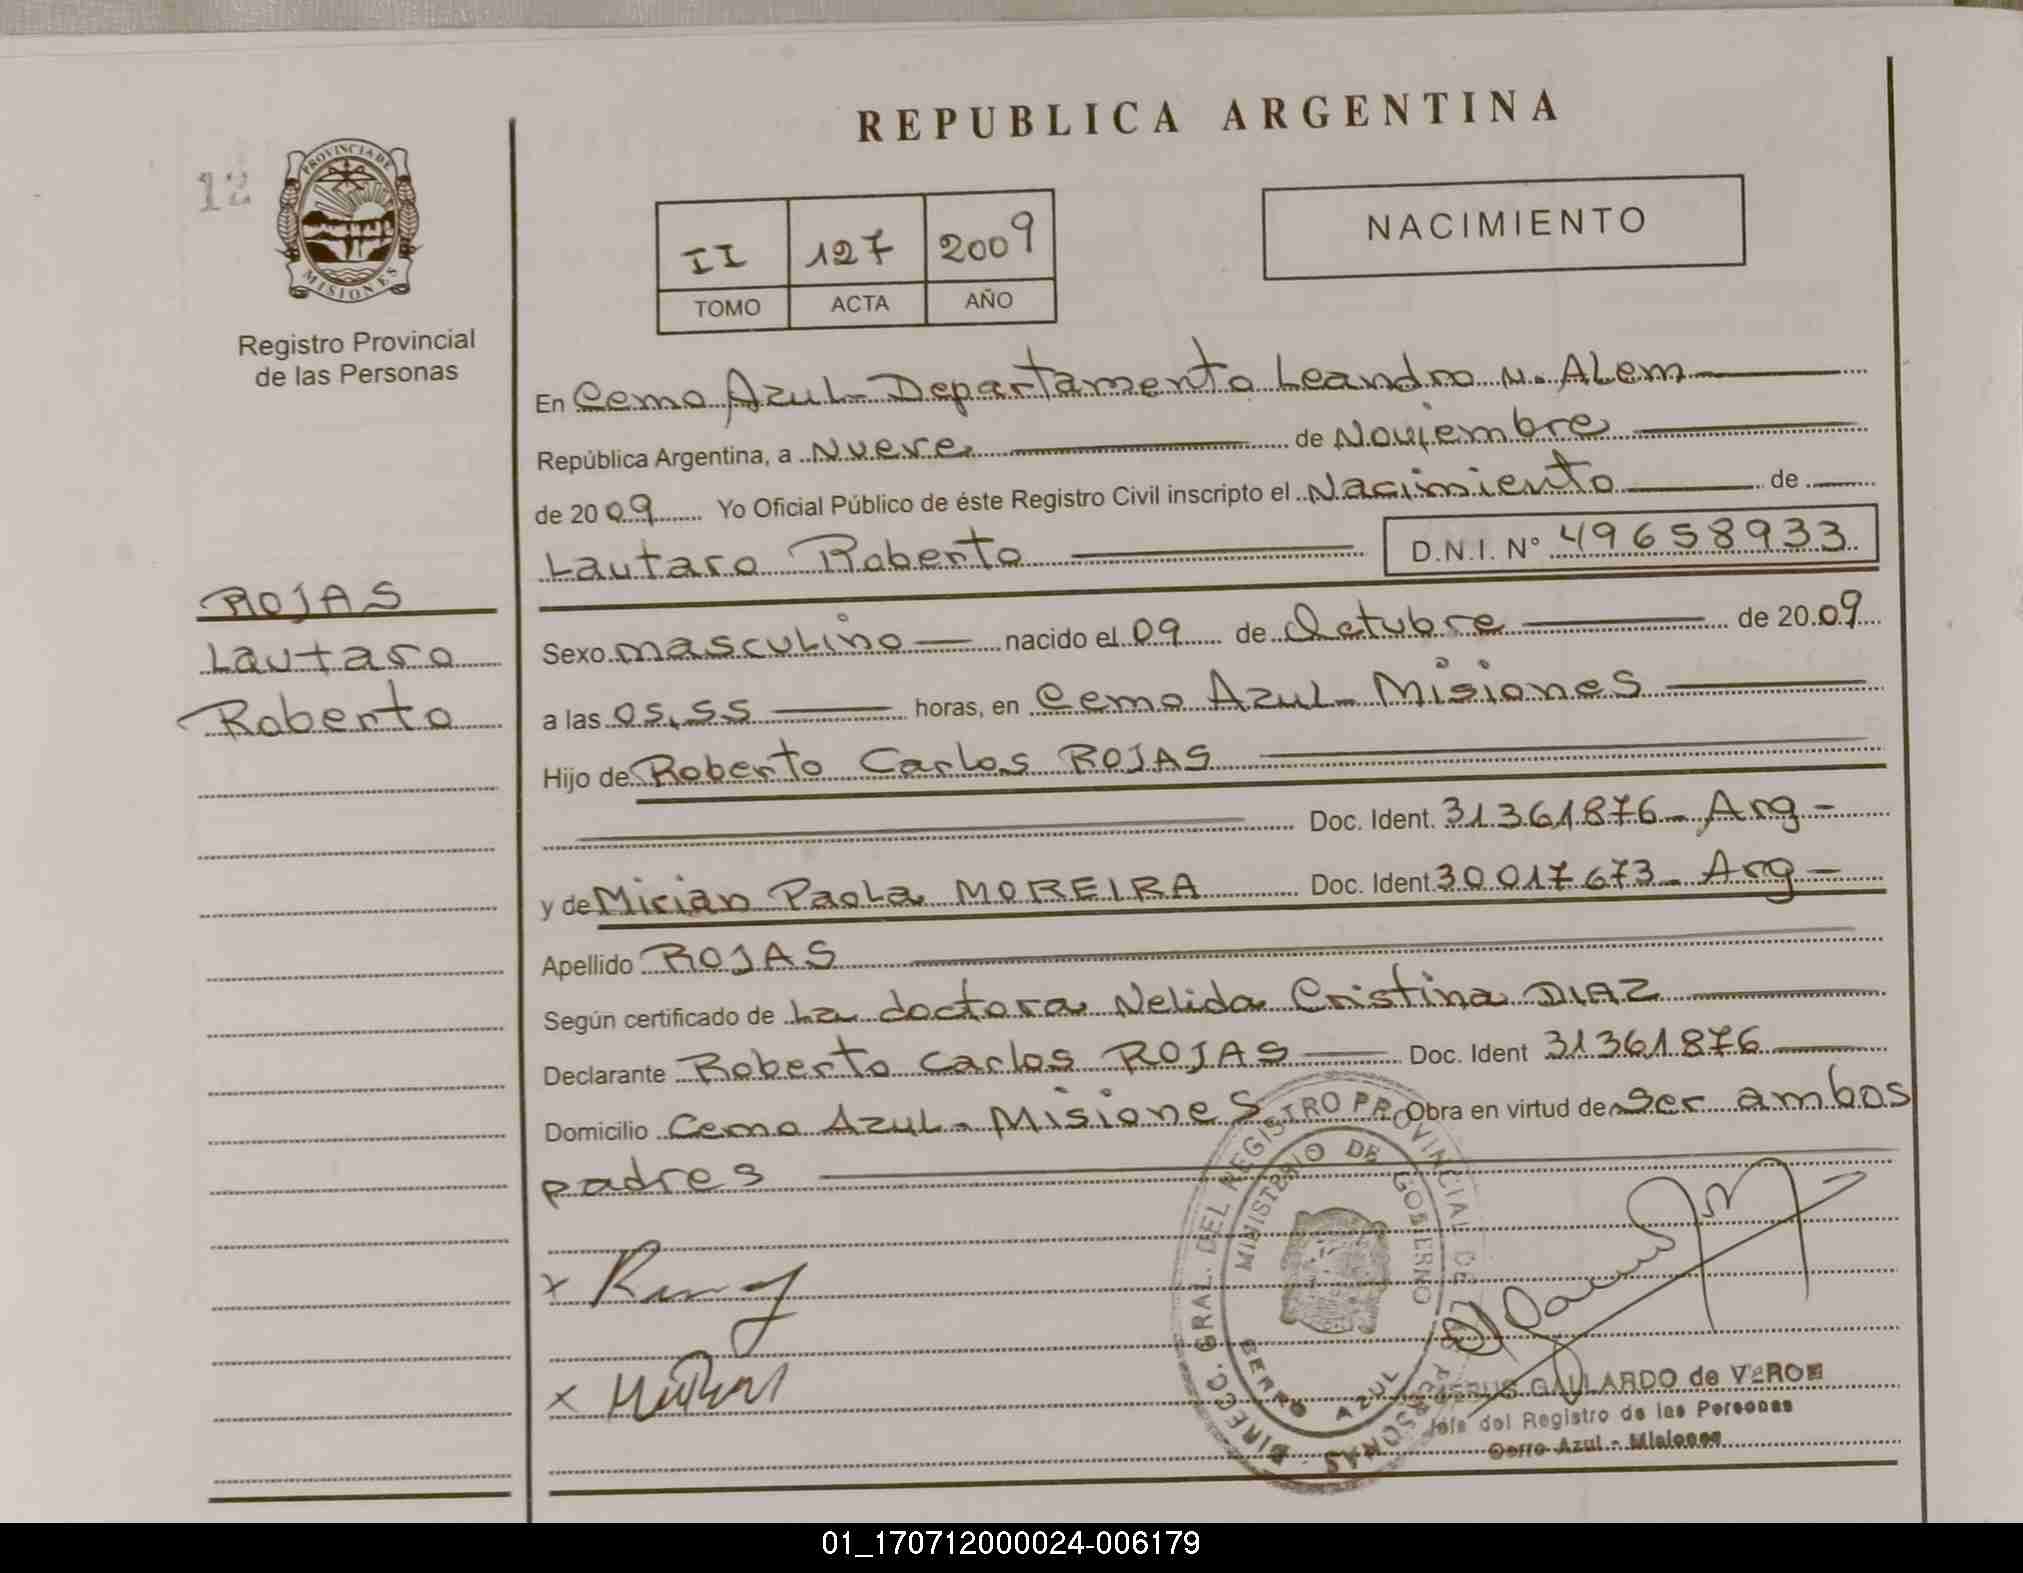 REPUBLICA ARGENTINA
12
PROVINCIA DE
MISIONES
Registro Provincial
de las Personas
II 127 2009
TOMO ACTA AÑO
NACIMIENTO
En Cerro Azul - Departamento Leandro N. Alem
República Argentina, a Nueve de Noviembre
de 2009 Yo Oficial Público de éste Registro Civil inscripto el Nacimiento de
Lautaro Roberto D.N.I. N° 49658933
ROJAS
Lautaro
Roberto
Sexo masculino nacido el 09 de Octubre de 2009
a las 05,55 horas, en Cerro Azul - Misiones
Hijo de Roberto Carlos ROJAS
Doc. Ident. 31361876 - Arg -
y de Mirian Paola MOREIRA Doc. Ident. 30017673 - Arg -
Apellido ROJAS
Según certificado de La doctora Nelida Cristina DIAZ
Declarante Roberto Carlos ROJAS Doc. Ident 31361876
Domicilio Cerro Azul - Misiones Obra en virtud de ser ambos
padres
DIRECC. GRAL. DEL REGISTRO PROVINCIAL DE LAS PERSONAS
MINISTERIO DE GOBIERNO
CERRO AZUL
GALLARDO de VERON
Jefe del Registro de las Personas
Cerro Azul - Misiones
01_170712000024-006179